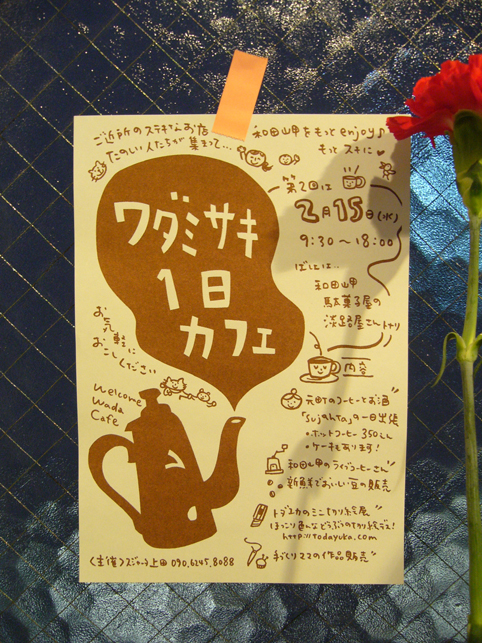 ご近所のステキなお店
たのしい人たちが集まって…
和田岬をもっとenjoy♪
もっとスキに♥
第2回は
2月15日(水)
9:30〜18:00
ばしょは…
和田岬
駄菓子屋の
淡路屋さんとなり
ワダミサキ
1日
カフェ
お気軽に
おこしください
Welcome
Wada
Cafe
内容
元町のコーヒーとお酒
「Sujahta」の一日出張
・ホットコーヒー350えん
・ケーキもあります!
和田岬のライブコーヒーさん
新鮮でおいしい豆の販売
トダユカのミニ切り絵展
ほっこり色んなどうぶつの切り絵デス!
http://todayuka.com
手づくりママの作品販売
(主催)スジャータ上田 090.6245.8088